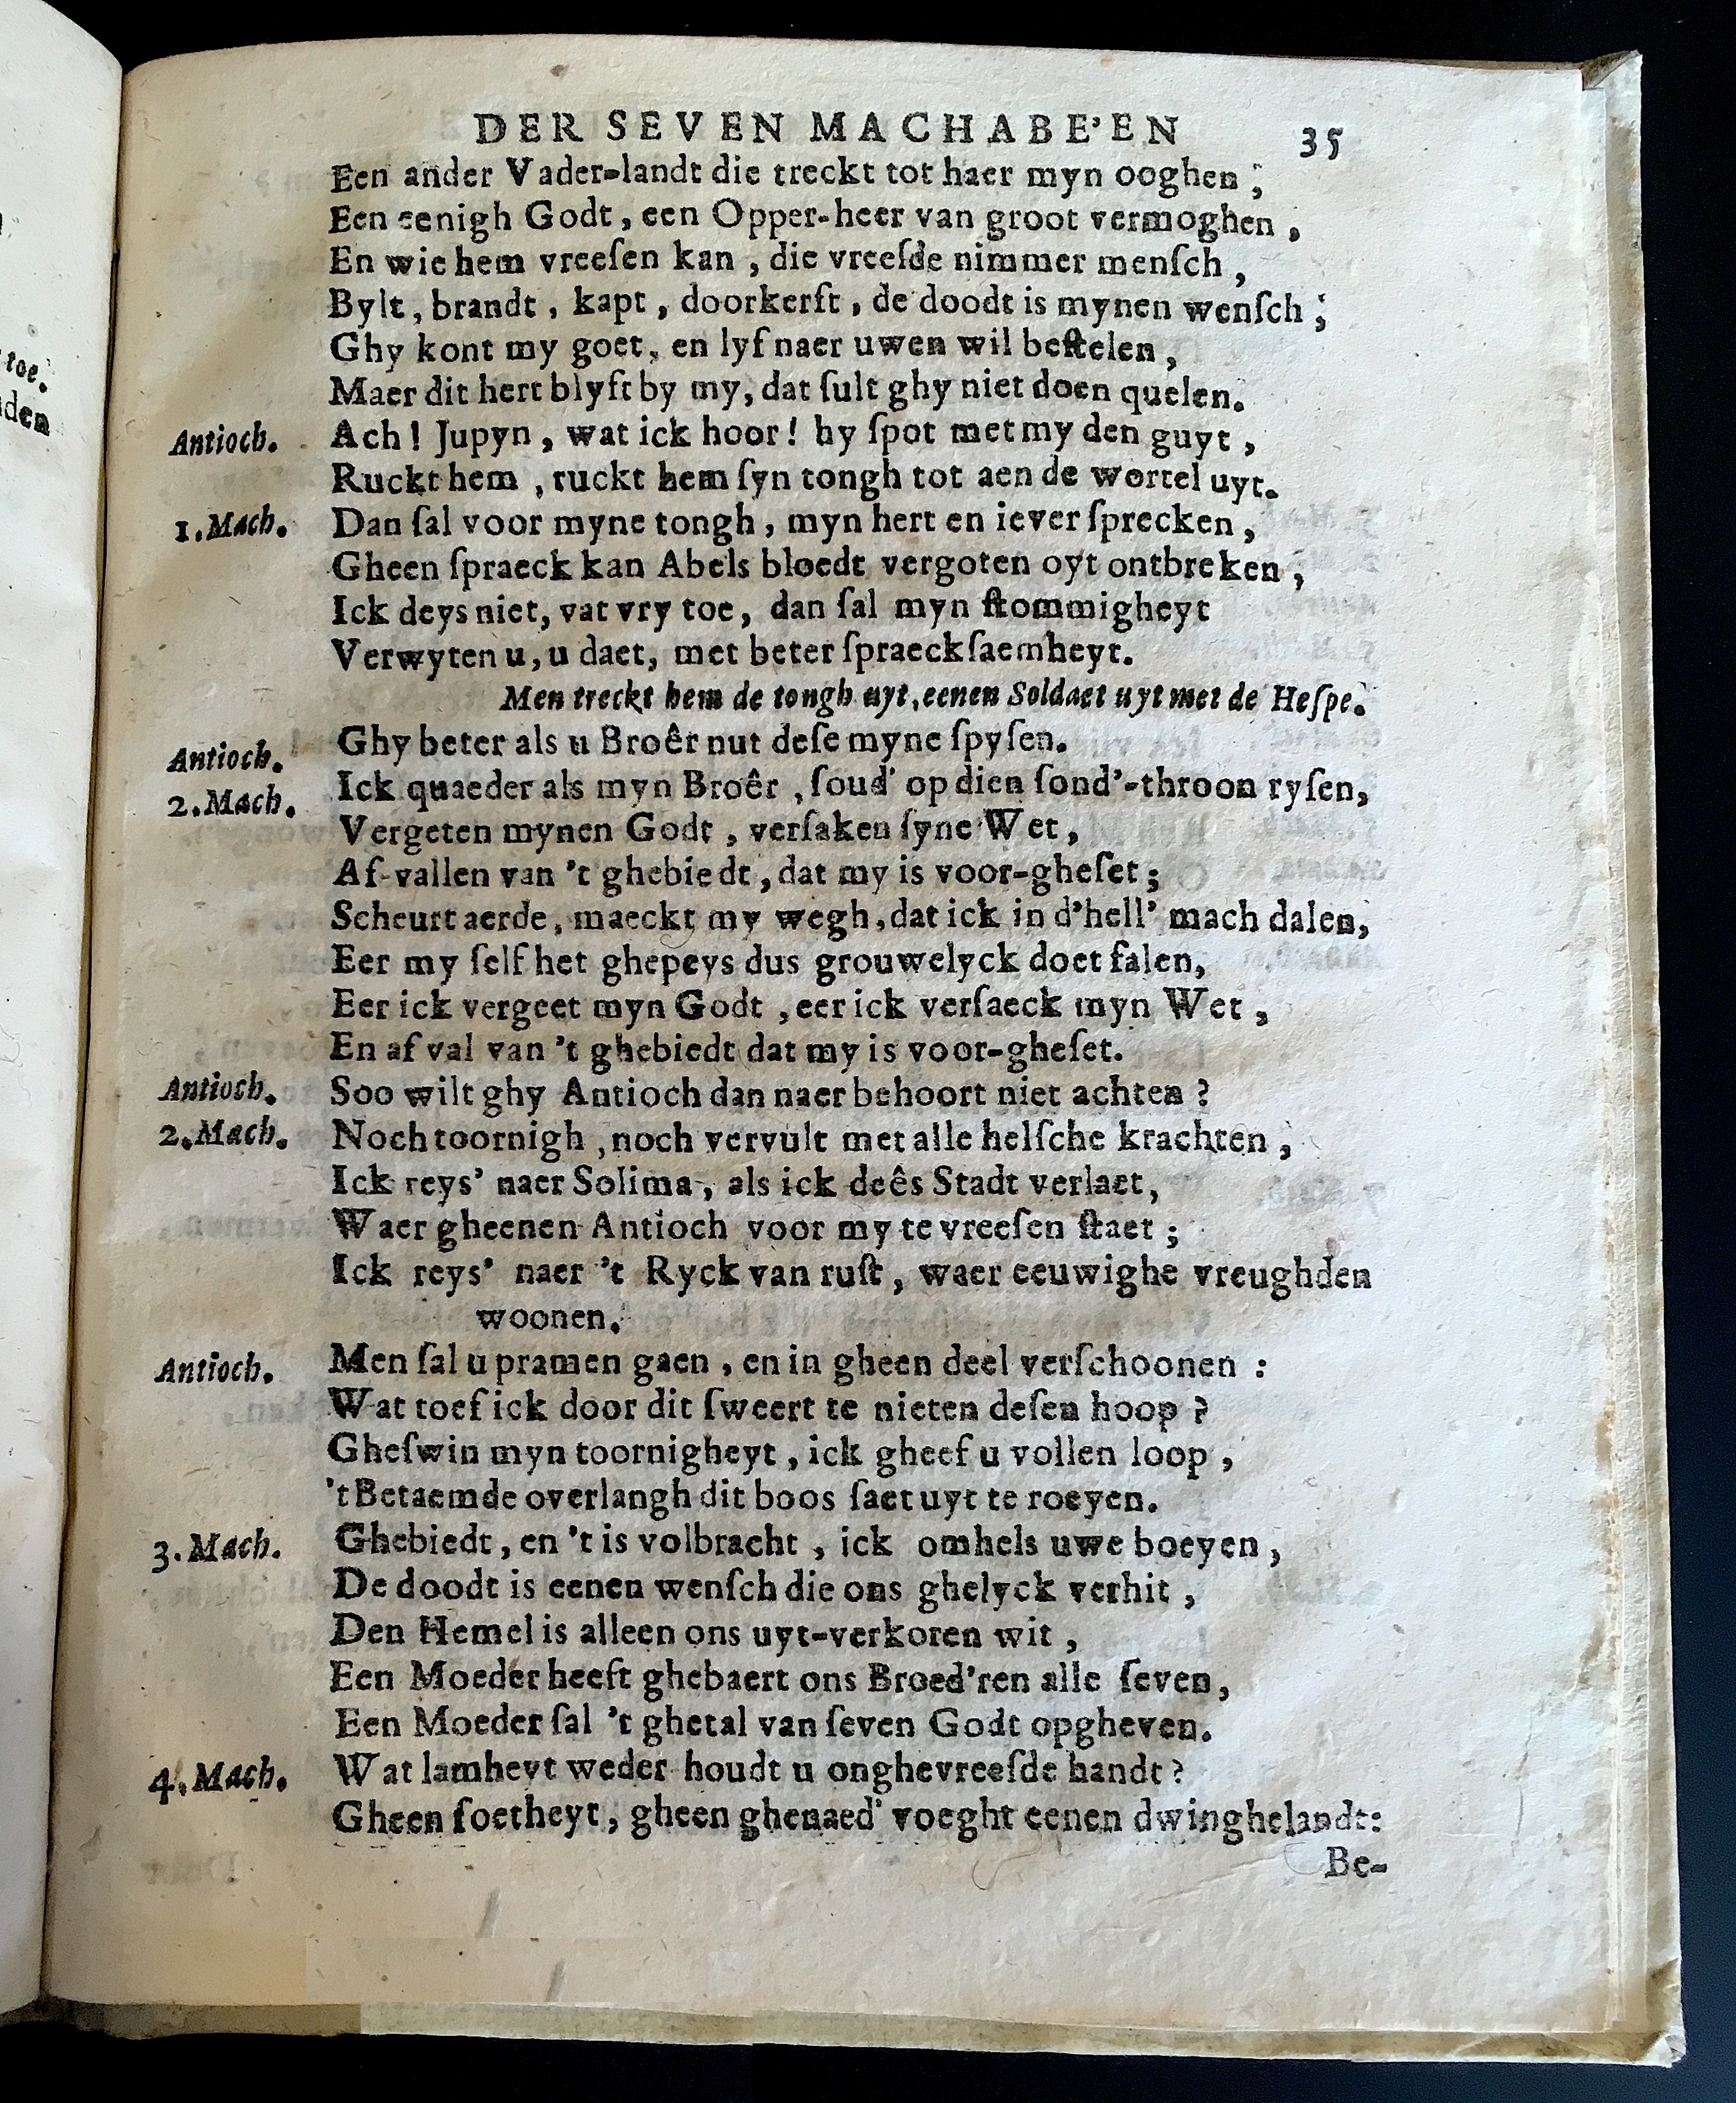 toe.
den
DER SEVEN MACHABE'EN 35
Een ander Vader-landt die treckt tot haer myn ooghen ;
Een eenigh Godt, een Opper-heer van groot vermoghen ,
En wie hem vreeſen kan , die vreeſde nimmer menſch ,
Bylt, brandt , kapt , doorkerſt , de doodt is mynen wenſch ;
Ghy kont my goet, en lyf naer uwen wil beſtelen ,
Maer dit hert blyft by my, dat ſult ghy niet doen quelen.
Antioch. Ach ! Jupyn , wat ick hoor ! hy ſpot met my den guyt ,
Ruckt hem , ruckt hem ſyn tongh tot aen de wortel uyt.
1. Mach. Dan ſal voor myne tongh , myn hert en iever ſprecken ,
Gheen ſpraeck kan Abels bloedt vergoten oyt ontbreken ;
Ick deys niet, vat vry toe, dan ſal myn ſtommigheyt
Verwyten u, u daet, met beter ſpraeckſaemheyt.
Men treckt hem de tongh uyt, eenen Soldaet uyt met de Heſpe.
Antioch. Ghy beter als u Broêr nut deſe myne ſpyſen.
2. Mach. Ick quaeder als myn Broêr , ſoud' op dien ſond'-throon ryſen,
Vergeten mynen Godt , verſaken ſyne Wet ,
Af-vallen van 't ghebiedt , dat my is voor-gheſet ;
Scheurt aerde, maeckt my wegh, dat ick in d'hell' mach dalen,
Eer my ſelf het ghepeys dus grouwelyck doet falen,
Eer ick vergeet myn Godt , eer ick verſaeck myn Wet ,
En af val van 't ghebiedt dat my is voor-gheſet.
Antioch. Soo wilt ghy Antioch dan naer behoort niet achten ?
2. Mach. Noch toornigh , noch vervult met alle helſche krachten ,
Ick reys' naer Solima , als ick deês Stadt verlaet,
Waer gheenen Antioch voor my te vreeſen ſtaet ;
Ick reys' naer 't Ryck van ruſt, waer eeuwighe vreughden
woonen.
Antioch. Men ſal u pramen gaen , en in gheen deel verſchoonen :
Wat toef ick door dit ſweert te nieten deſen hoop ?
Gheſwin myn toornigheyt , ick gheef u vollen loop ,
't Betaemde overlangh dit boos ſaet uyt te roeyen.
3. Mach. Ghebiedt, en 't is volbracht , ick omhels uwe boeyen ,
De doodt is eenen wenſch die ons ghelyck verhit ,
Den Hemel is alleen ons uyt-verkoren wit ,
Een Moeder heeft ghebaert ons Broed'ren alle ſeven ,
Een Moeder ſal 't ghetal van ſeven Godt opgheven.
4. Mach. Wat lamheyt weder houdt u onghevreeſde handt ?
Gheen ſoetheyt, gheen ghenaed' voeght eenen dwinghelandt:
Be-